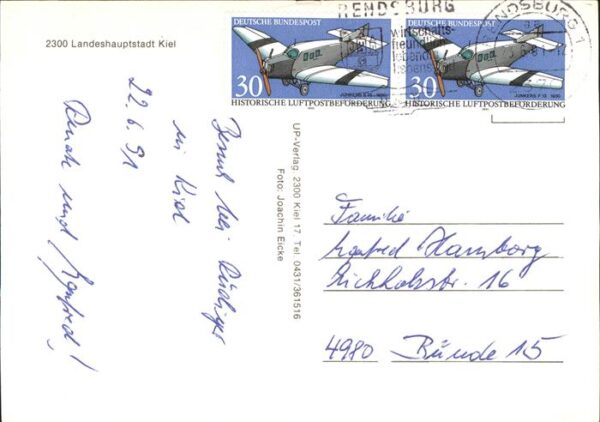 2300 Landeshauptstadt Kiel
22.6.91
Besuch bei Rüdiger
in Kiel
Renate und Manfred!
UP-Verlag 2300 Kiel 17 Tel. 0431/361516
Foto: Joachim Eicke
RENDSBURG
wirtschafts-
freundlich
lebend
RENDSBURG 1
DEUTSCHE BUNDESPOST
30
JUNKERS F.13 · 1930
HISTORISCHE LUFTPOSTBEFÖRDERUNG
DEUTSCHE BUNDESPOST
30
JUNKERS F.13 · 1930
HISTORISCHE LUFTPOSTBEFÖRDERUNG
Familie
Manfred Hamborg
Eichholzstr. 16
4980 Bünde 15